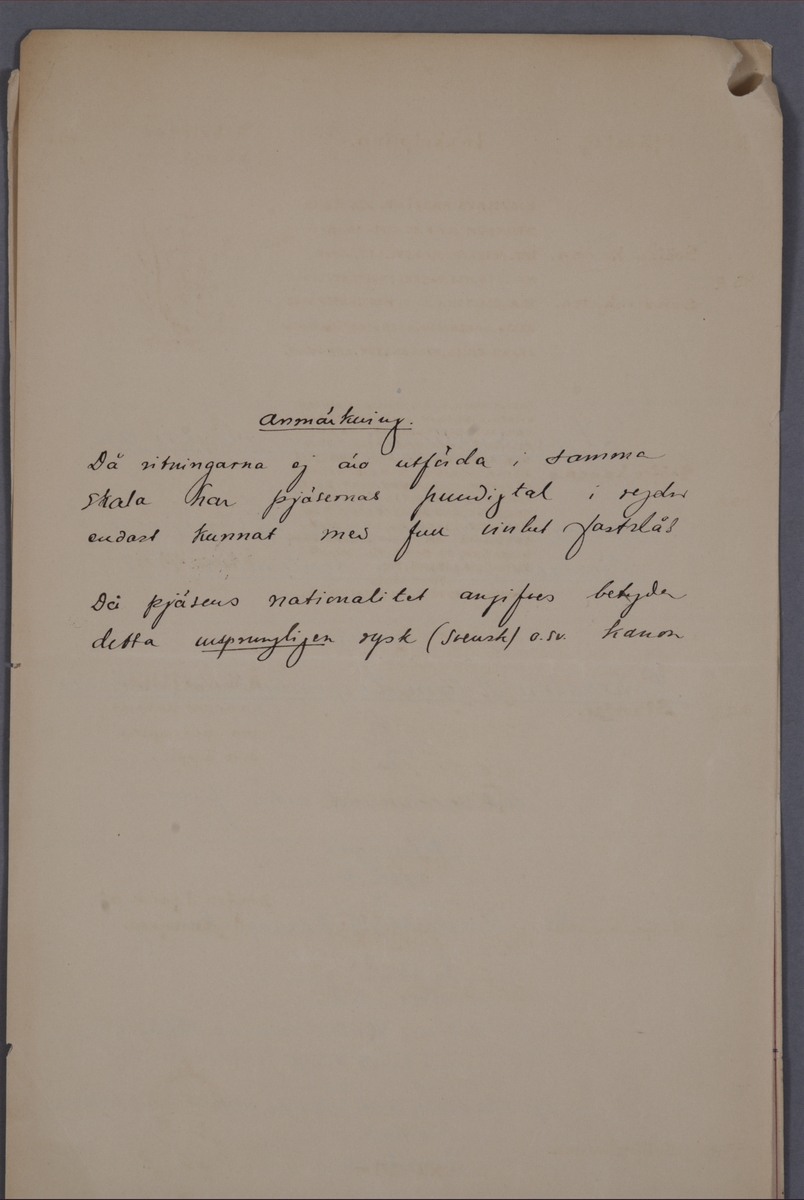 Anmärkning.
Då ritningarna ej äro utförda i samma
skala har pjäsernas pundigtal i
endast kunnat med full fastslås
Då pjäsens nationalitet angifves betyder
detta ursprungligen rysk (svensk) o.sv. kanon